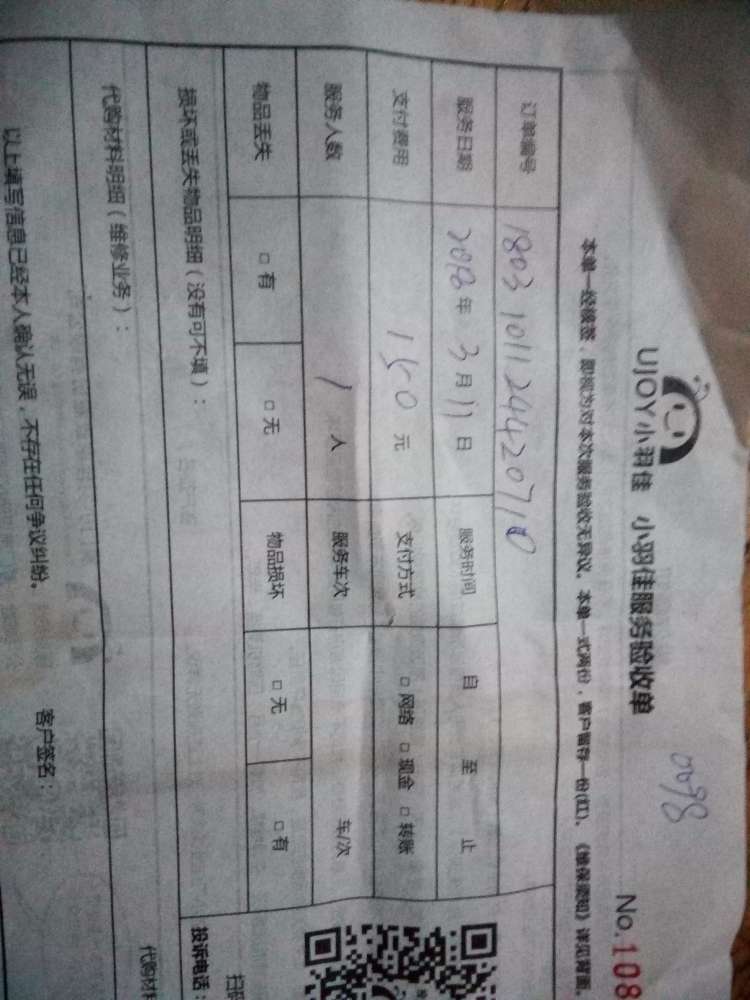 UJOY小羽佳 小羽佳服务验收单
0098
No.108
本单一经接签，即视为对本次服务验收无异议。本单一式两份，客户留存一份(红)。《维保须知》详见背面。
订单编号 180310112442071
服务日期 2018年3月11日 服务时间 自 至 止
支付费用 150元 支付方式 □网络 □现金 □转账
服务人数 1人 服务车次 车/次
物品丢失 □有 □无 物品损坏 □无 □有
损坏或丢失物品明细（没有可不填）：
代购材料明细（维修业务）：
以上填写信息已经本人确认无误，不存在任何争议纠纷。
客户签名：
投诉电话：
扫码
代购材料